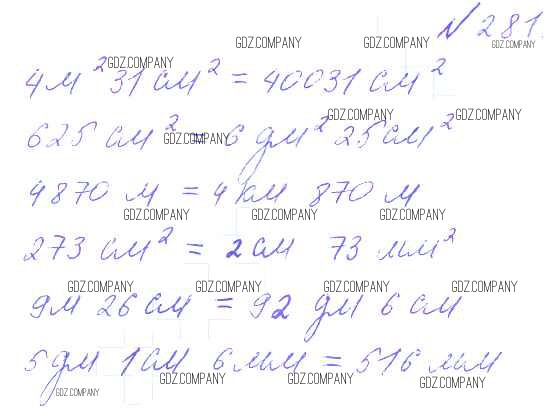 № 281.
4 м² 31 см² = 40031 см²
625 см² = 6 дм² 25 см²
4870 м = 4 км 870 м
273 см² = 2 см 73 мм²
9 м 26 см = 92 дм 6 см
5 дм 1 см 6 мм = 516 мм
GDZ.COMPANY GDZ.COMPANY GDZ.COMPANY
GDZ.COMPANY
GDZ.COMPANY GDZ.COMPANY
GDZ.COMPANY
GDZ.COMPANY GDZ.COMPANY GDZ.COMPANY
GDZ.COMPANY GDZ.COMPANY GDZ.COMPANY GDZ.COMPANY
GDZ.COMPANY GDZ.COMPANY GDZ.COMPANY
GDZ.COMPANY